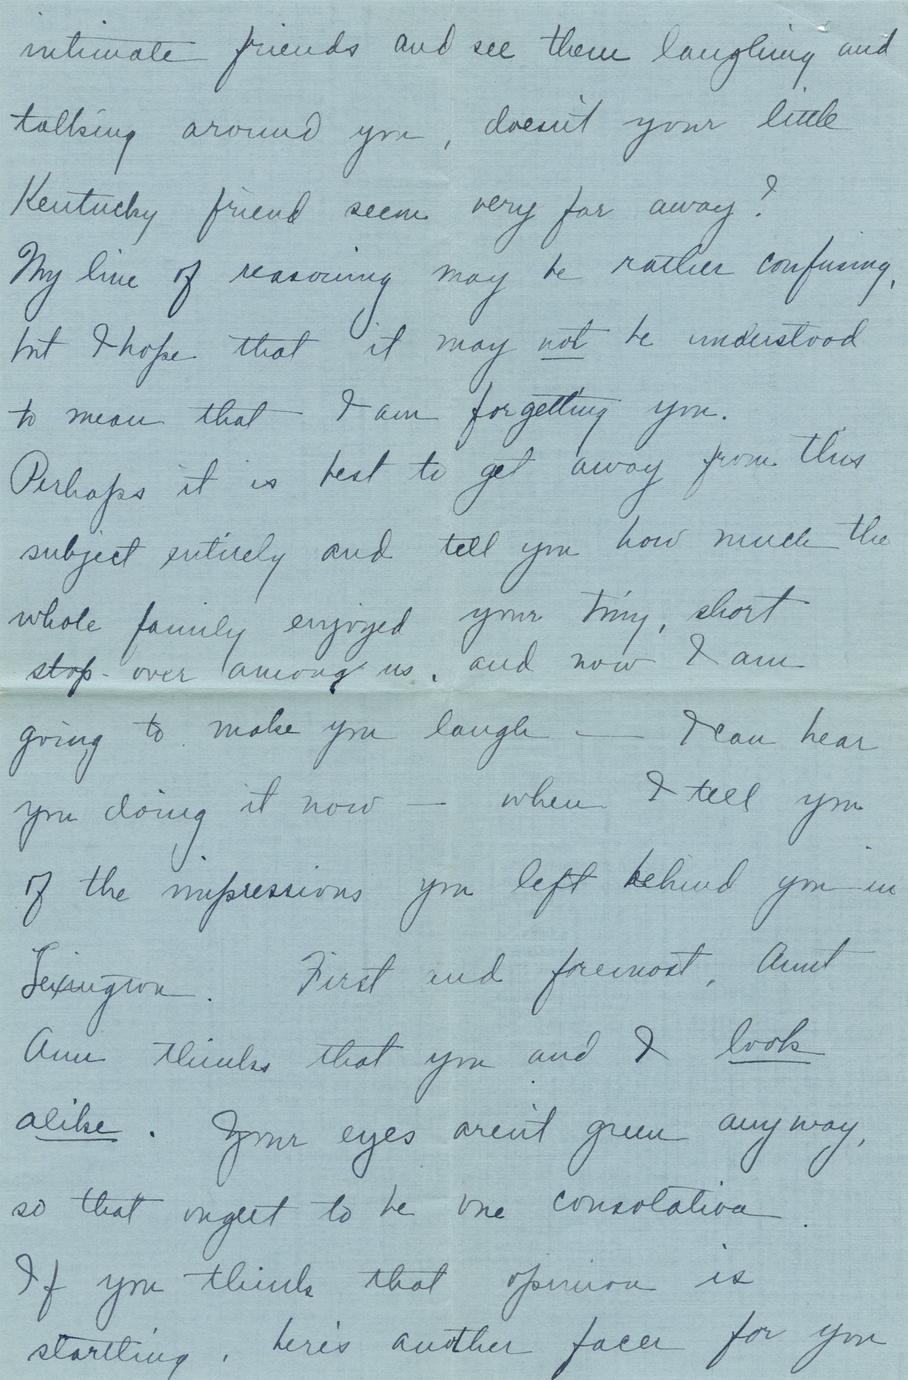 intimate friends and see them laughing and
talking around you, doesn't your little
Kentucky friend seem very far away?
My line of reasoning may be rather confusing,
but I hope that it may not be understood
to mean that I am forgetting you.
Perhaps it is best to get away from this
subject entirely and tell you how much the
whole family enjoyed your tiny, short
stop-over among us, and now I am
going to make you laugh — I can hear
you doing it now — when I tell you
of the impressions you left behind you in
Lexington. First and foremost, Aunt
Ann thinks that you and I look
alike. Your eyes aren't green anyway,
so that ought to be one consolation.
If you think that opinion is
startling, here's another facer for you